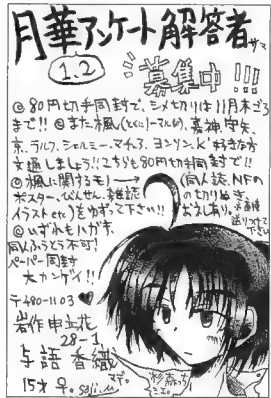 月華アンケート解答者サマ
1.2 募集中!!!
◎80円切手同封で、シメ切りは11月末ごろ
まで!!◎また楓(とくにノーマル時)、嘉神、守矢、
京、ラルフ、シェルミー、マチュア、ヨンリン、K'好きな方
文通しましょう!!こちらも80円切手同封で!!
◎楓に関するモノ→(同人誌、NFの
ポスター、びんせん、雑誌の切りぬき、
イラストetc)をゆずって下さい!!
◎いずれもハガキ、
同人ふうとう不可!
ペーパー同封
大カンゲイ!!
〒480-1103
岩作申立花
28-1
与語香織
15才♀。
マデ。